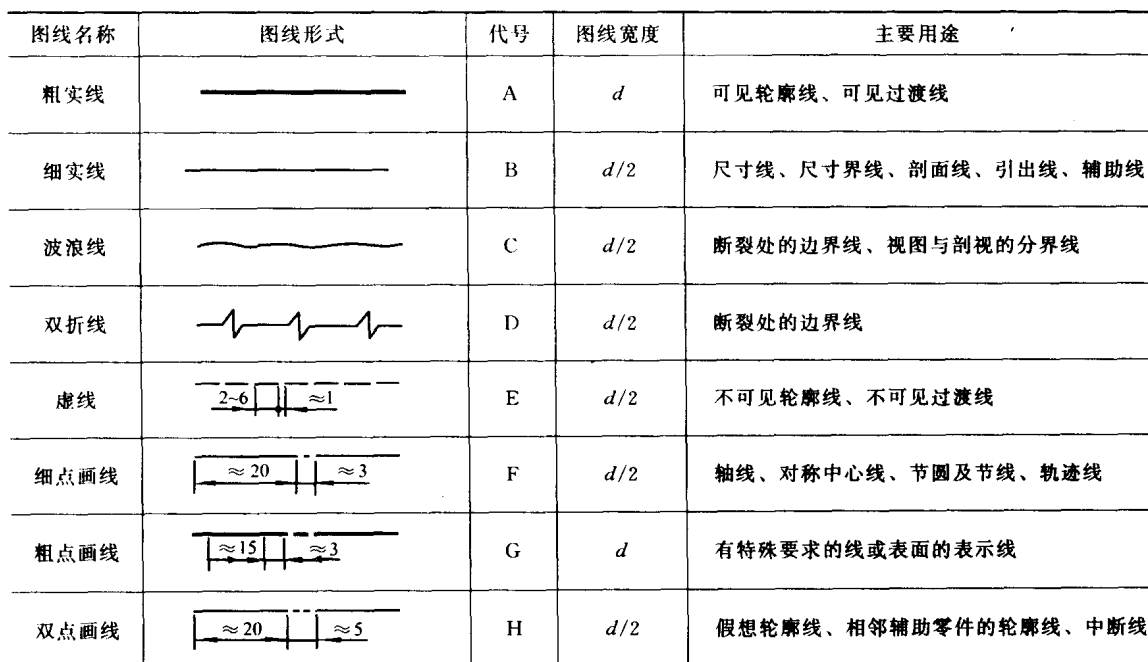 图线名称 图线形式 代号 图线宽度 主要用途
粗实线 A d 可见轮廓线、可见过渡线
细实线 B d/2 尺寸线、尺寸界线、剖面线、引出线、辅助线
波浪线 C d/2 断裂处的边界线、视图与剖视的分界线
双折线 D d/2 断裂处的边界线
虚线 2~6 ≈1 E d/2 不可见轮廓线、不可见过渡线
细点画线 ≈20 ≈3 F d/2 轴线、对称中心线、节圆及节线、轨迹线
粗点画线 ≈15 ≈3 G d 有特殊要求的线或表面的表示线
双点画线 ≈20 ≈5 H d/2 假想轮廓线、相邻辅助零件的轮廓线、中断线